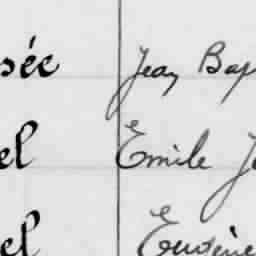 sée Jean Bap
el Emile Je
el Eugène